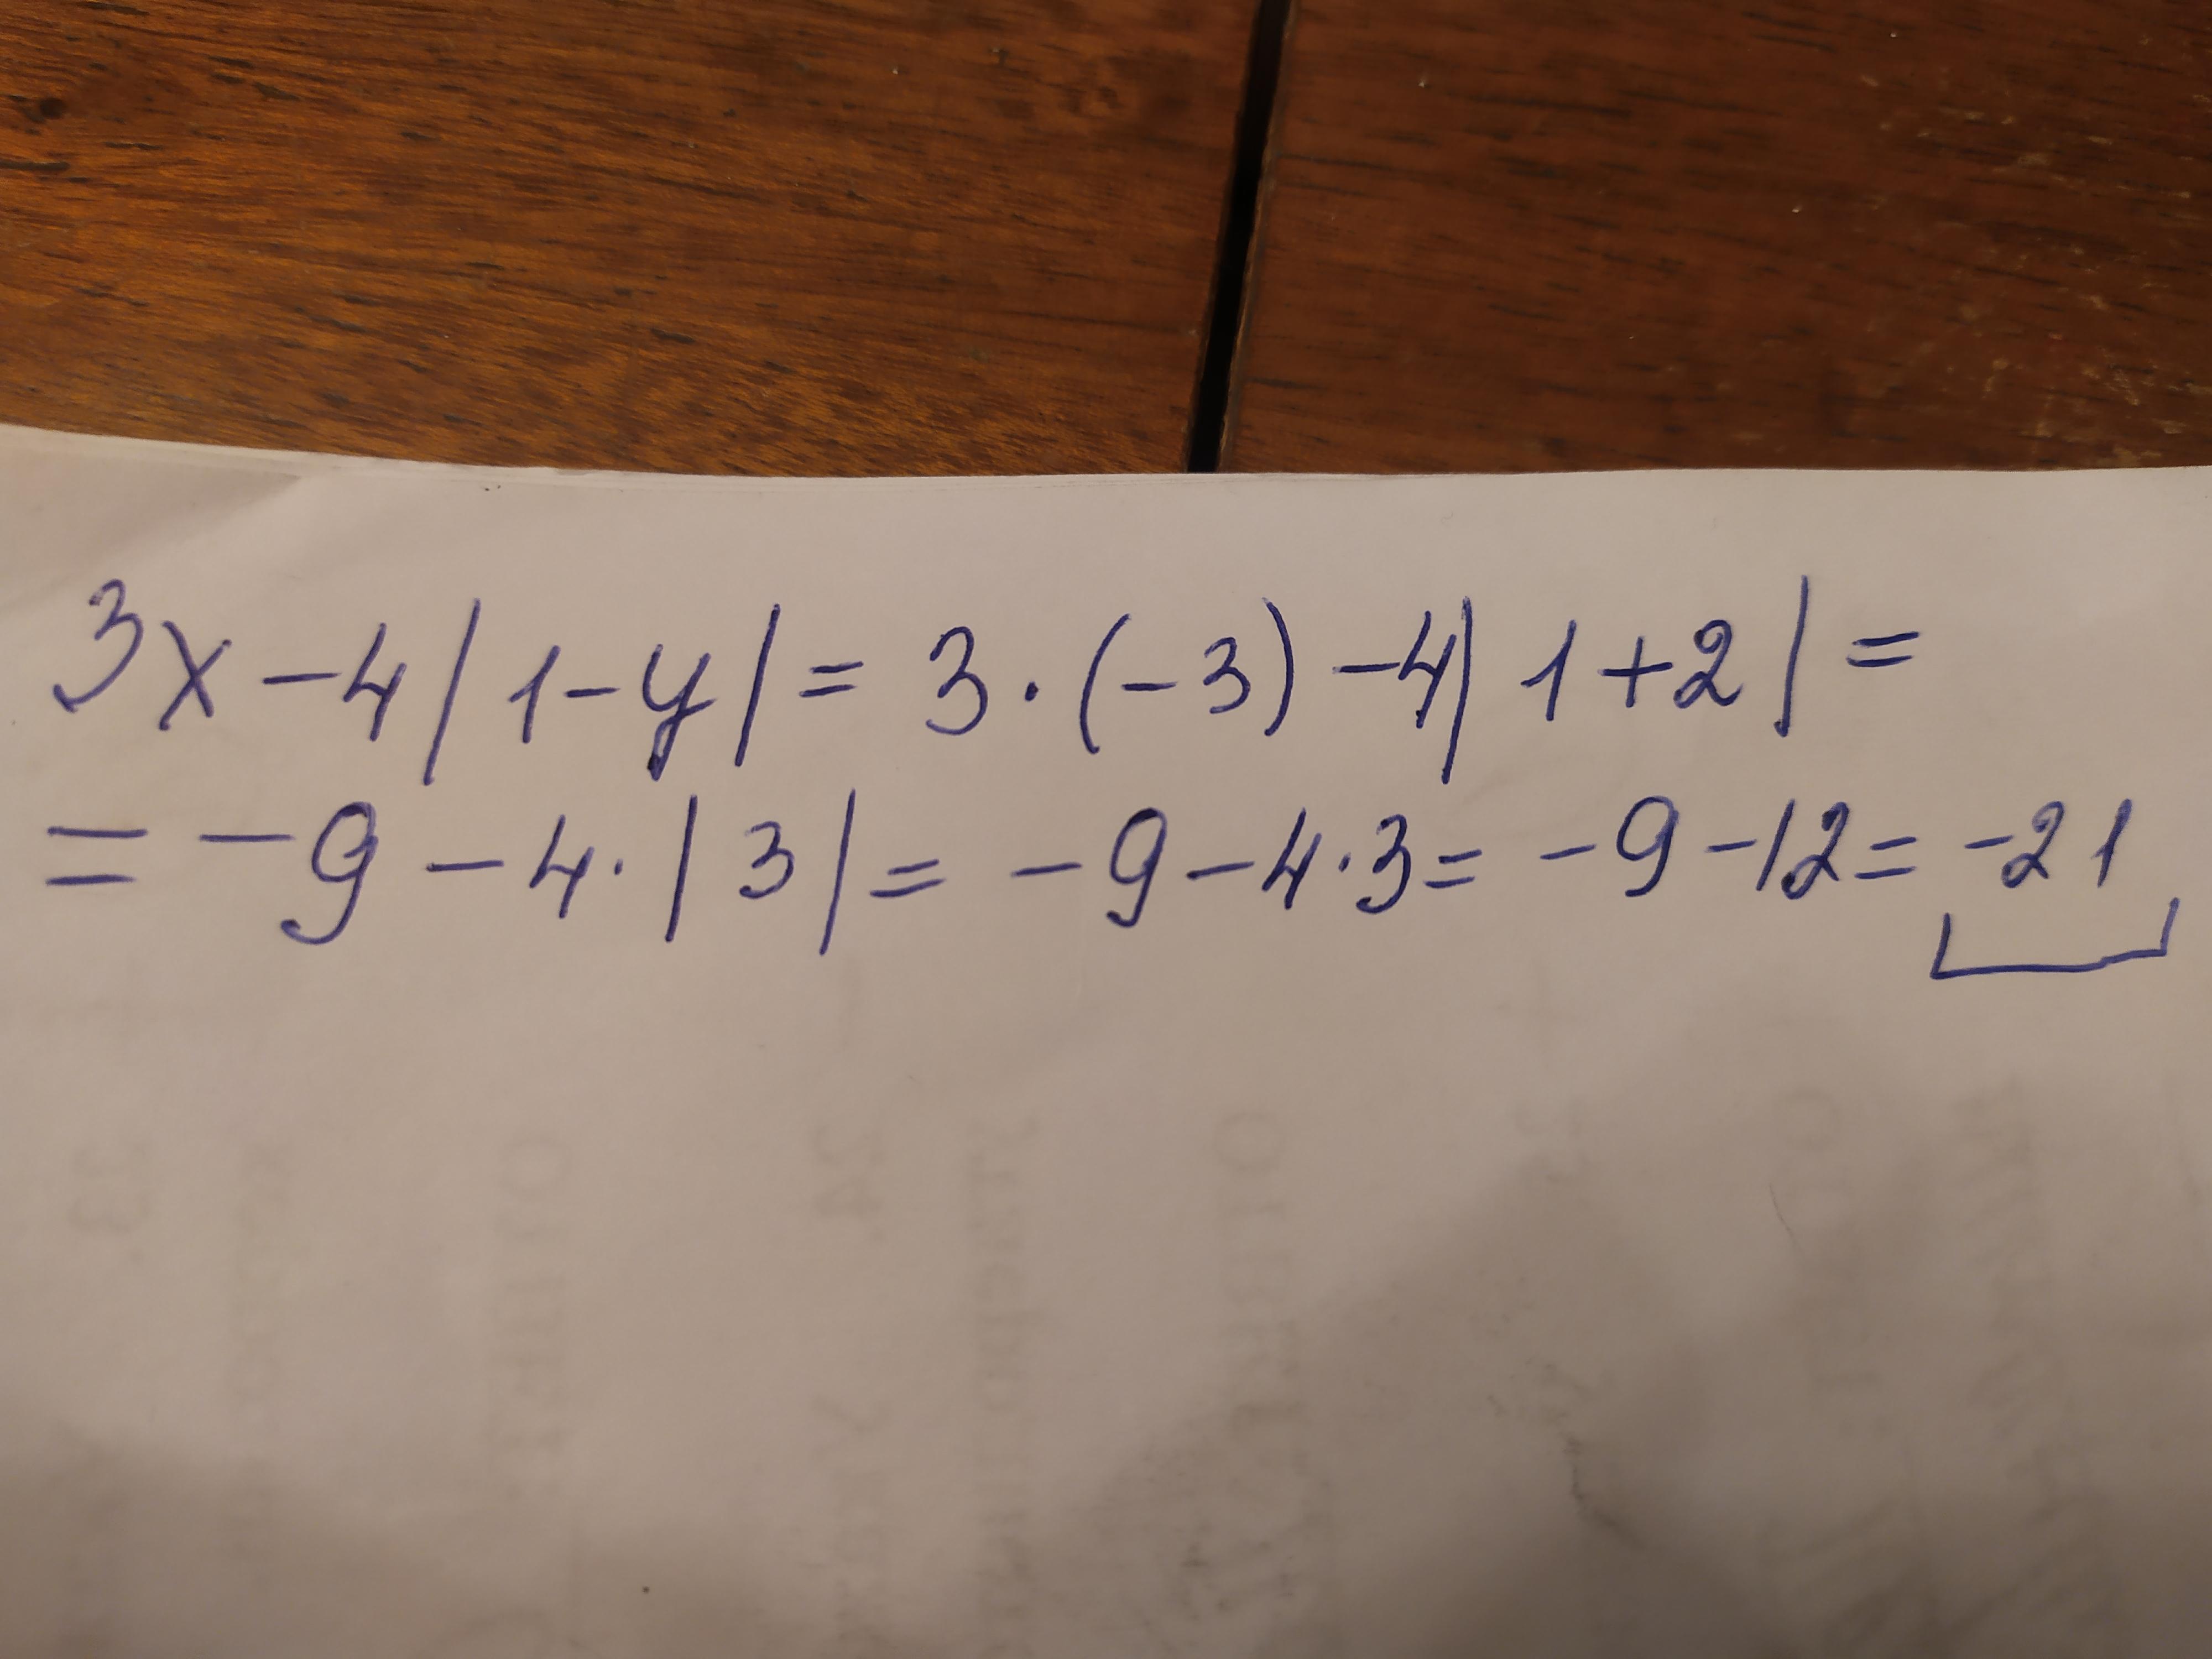 3x - 4 | 1 - y | = 3 · (-3) - 4 | 1 + 2 | =
= - 9 - 4 · | 3 | = - 9 - 4 · 3 = - 9 - 12 = - 21